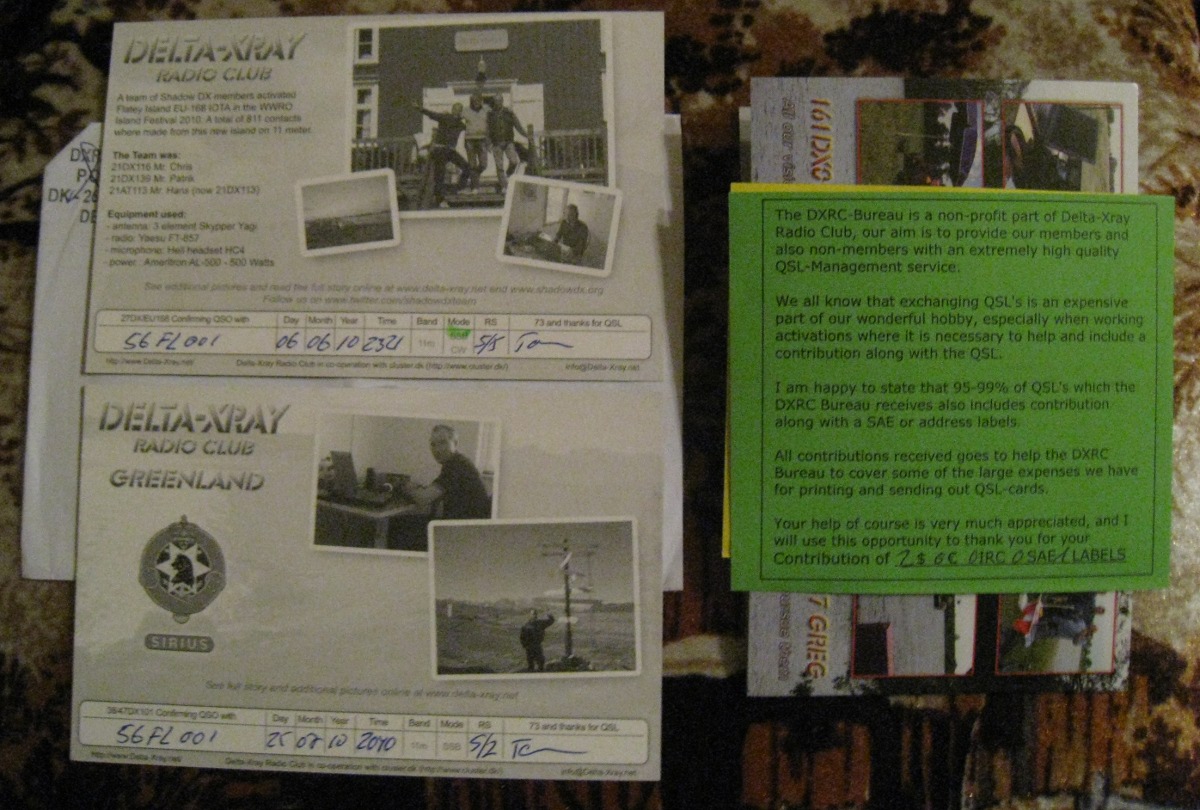 DELTA-XRAY
RADIO CLUB
A team of Shadow DX members activated
Flatey Island EU-168 IOTA in the WWRO
Island Festival 2010. A total of 811 contacts
where made from this new island on 11 meter.
The Team was:
21DX116 Mr. Chris
21DX139 Mr. Patrik
21AT113 Mr. Hans (now 21DX113)
Equipment used:
- antenna: 3 element Skypper Yagi
- radio: Yaesu FT-857
- microphone: Heil headset HC4
- power: Ameritron AL-500 - 500 Watts
See additional pictures and read the full story online at www.delta-xray.net and www.shadowdx.org
Follow us on www.twitter.com/shadowdxteam
27DX/EU168 Confirming QSO with Day Month Year Time Band Mode RS 73 and thanks for QSL
56FL001 06 06 10 2321 11m CW 5/5 Tom
http://www.Delta-Xray.net/ Delta-Xray Radio Club in co-operation with cluster.dk (http://www.cluster.dk/) info@Delta-Xray.net
DELTA-XRAY
RADIO CLUB
GREENLAND
SIRIUS
See full story and additional pictures online at www.delta-xray.net
Confirming QSO with Day Month Year Time Band Mode RS 73 and thanks for QSL
56FL001 25 07 10 2010 11m SSB 5/2 Tom
http://www.Delta-Xray.net/ Delta-Xray Radio Club in co-operation with cluster.dk (http://www.cluster.dk/) info@Delta-Xray.net
161DX0
The DXRC-Bureau is a non-profit part of Delta-Xray
Radio Club, our aim is to provide our members and
also non-members with an extremely high quality
QSL-Management service.
We all know that exchanging QSL's is an expensive
part of our wonderful hobby, especially when working
activations where it is necessary to help and include a
contribution along with the QSL.
I am happy to state that 95-99% of QSL's which the
DXRC Bureau receives also includes contribution
along with a SAE or address labels.
All contributions received goes to help the DXRC
Bureau to cover some of the large expenses we have
for printing and sending out QSL-cards.
Your help of course is very much appreciated, and I
will use this opportunity to thank you for your
Contribution of 2 $ 0 € 0 IRC 0 SAE 1 LABELS
T GREG